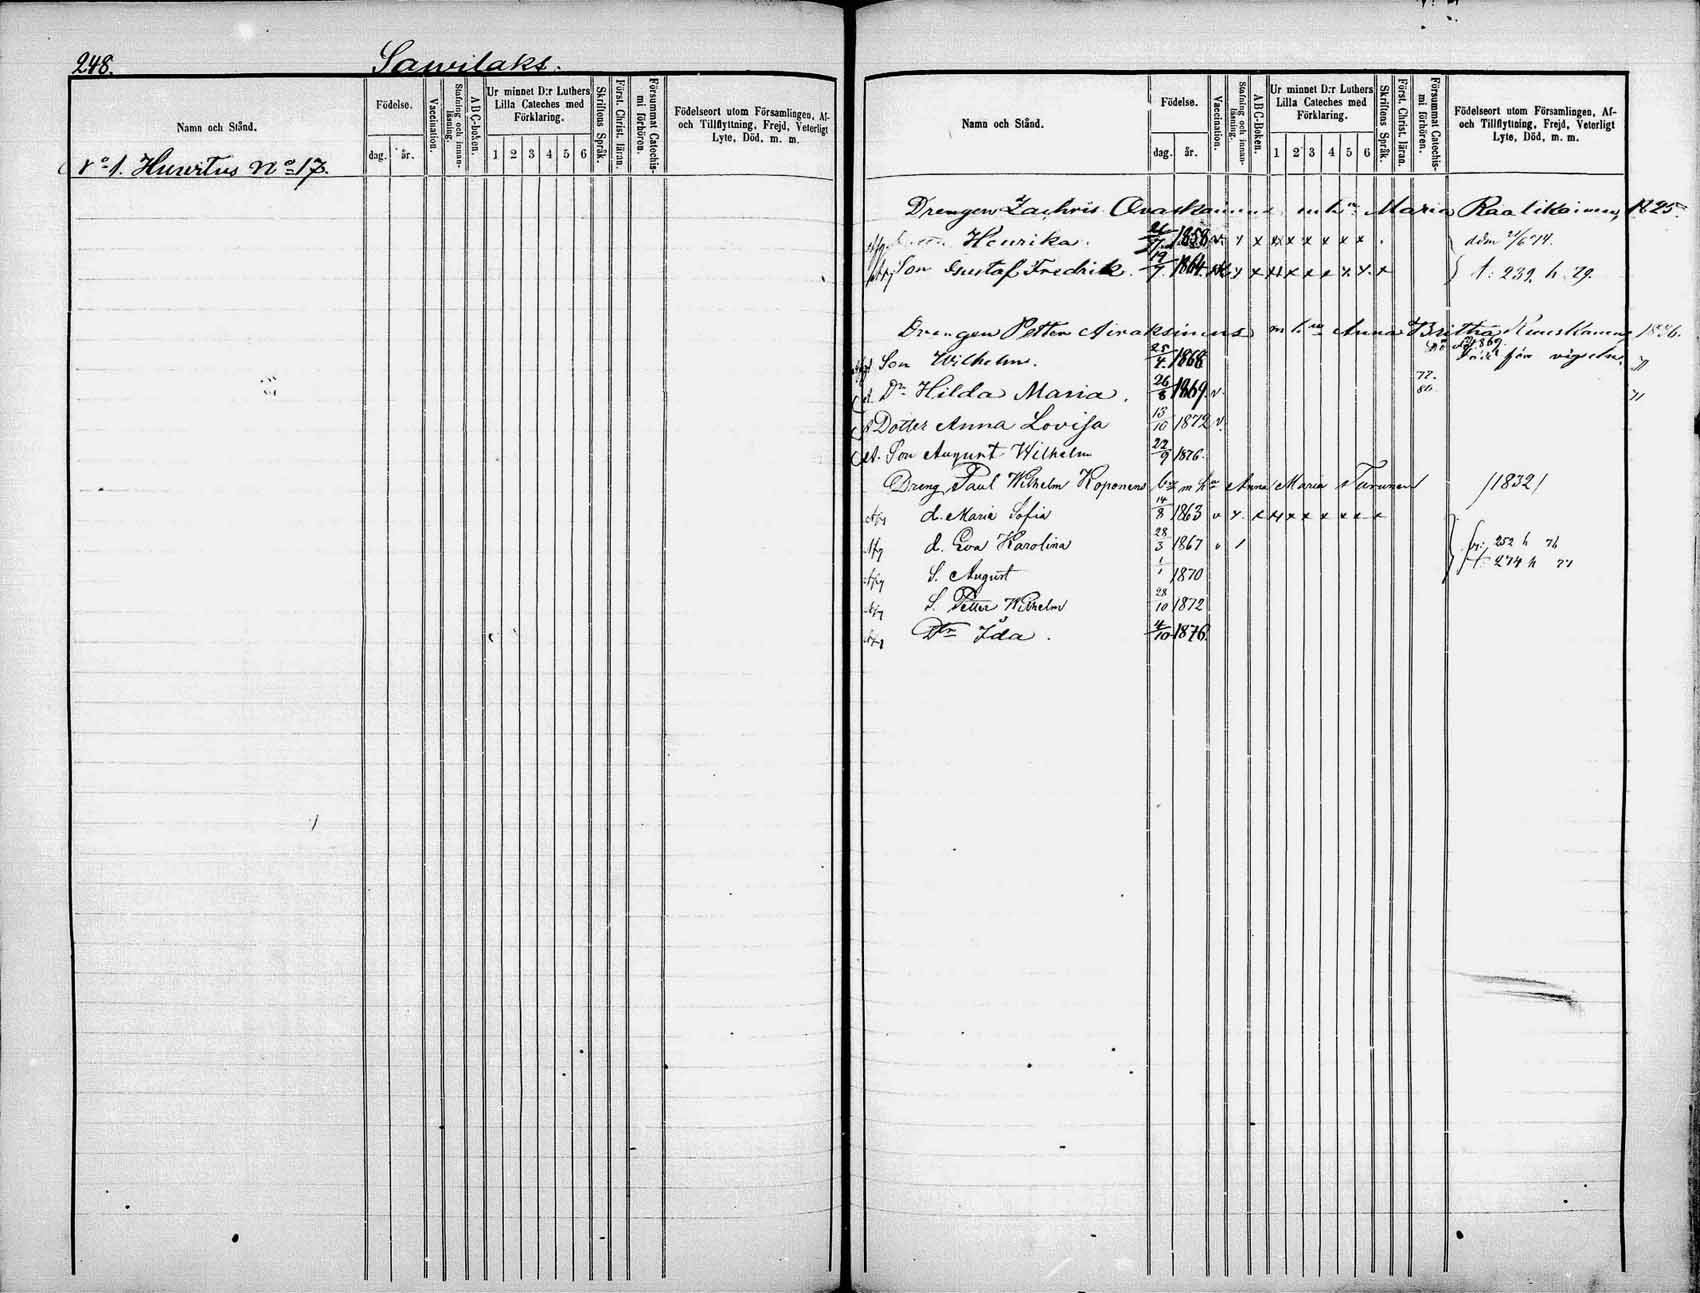 248. Savilaks.
Namn och Stånd.
Födelse.
dag. år.
Vaccination.
Stafning och innanläsning.
ABC-boken.
Ur minnet D:r Luthers Lilla Cateches med Förklaring.
1 2 3 4 5 6
Skriftens Språk.
Först. Christ. läran.
Försummat Catechismi förhören.
Födelseort utom Församlingen, Af- och Tillflyttning, Frejd, Veterligt Lyte, Död, m. m.
No 1. Huurtus No 17.
Namn och Stånd.
Födelse.
dag. år.
Vaccination.
Stafning och innanläsning.
ABC-boken.
Ur minnet D:r Luthers Lilla Cateches med Förklaring.
1 2 3 4 5 6
Skriftens Språk.
Först. Christ. läran.
Försummat Catechismi förhören.
Födelseort utom Församlingen, Af- och Tillflyttning, Frejd, Veterligt Lyte, Död, m. m.
Drengen Zachris Ovaskainens Maria Raatikainen 1825
Henrika. 1858 v. x x x x x x x x
Son Gustaf Fredrik. 19/7 1864 x x x x x x x x x t: 239. h. 79.
Drengen Petter Airaksinens m hu Anna Britha 1826.
Son Wilhelm. 25/4 1868 för vigseln
Dr Hilda Maria. 26/8 1869 v. 77. 80.
Dotter Anna Lovisa 15/10 1872 v.
Son August Wilhelm 22/9 1876.
Dreng Paul Wilhelm Koponens m hu Anna Maria Turunen /1832/
d. Maria Sofia 14/8 1863 v x x x x x x x x x
d. Eva Karolina 28/3 1867 v / fr: 252 h 76
S. August 1/1 1870 t: 274 h 77
S. Petter Wilhelm 28/10 1872
Dtr Ida. 4/10 1876.